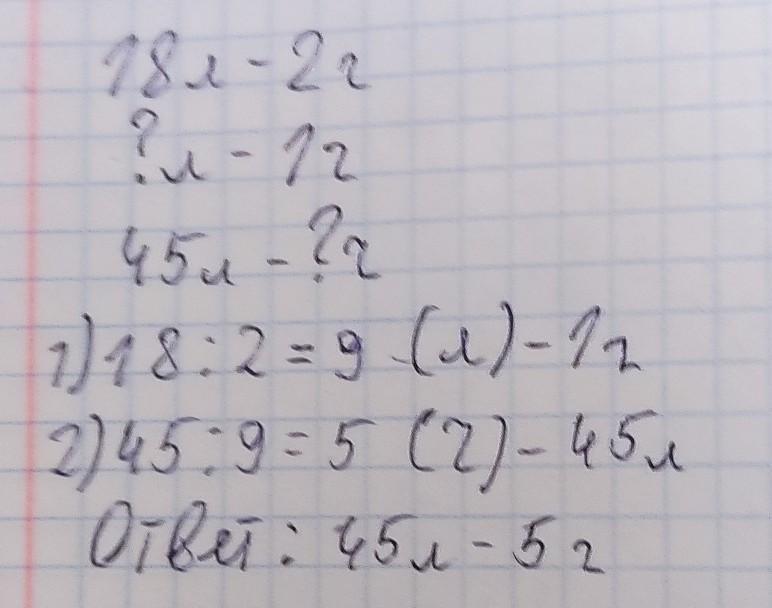 18л - 2г
?л - 1г
45л - ?г
1) 18 : 2 = 9 (л) - 1г
2) 45 : 9 = 5 (г) - 45л
Ответ : 45л - 5г